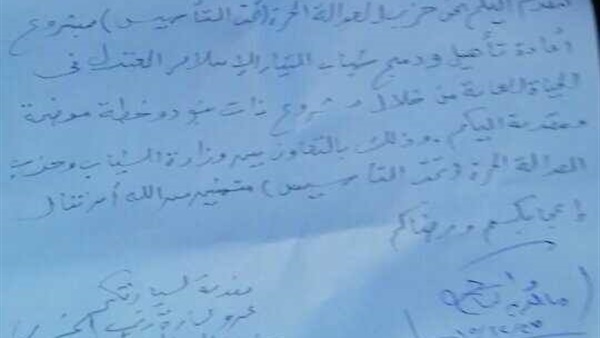 نتقدم اليكم نحن حزب العدالة الحرة (تحت التأسيس) بمشروع
أعادة تأهيل ودمج شباب التيار الإسلامى المعتدل فى
الحياة العامة من خلال مشروع ذات بنود وخطة موضحة
ومقدمة اليكم. وذلك بالتعاون بين وزارة الشباب وحزب
العدالة الحرة (تحت التأسيس) متمنين من الله أن ننال
إعجابكم ورضاكم
مقدمة لسيادتكم
عمرو